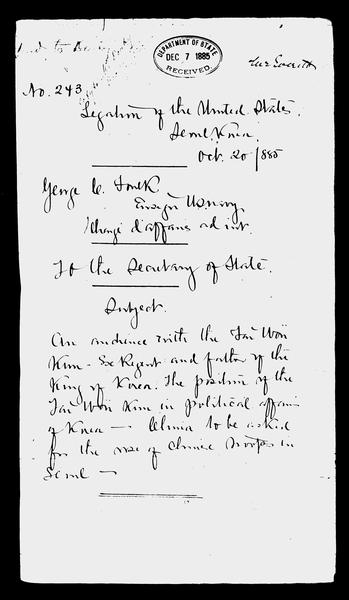 DEPARTMENT OF STATE
DEC 7 1885
RECEIVED
No. 243
Legation of the United States,
Seoul, Korea,
Oct. 20 1885
George C. Foulk
Ensign U.S. Navy
Chargé d'affaires ad int.
To the Secretary of State.
Subject.
An audience with the Tai Won
Kun - Ex Regent and father of the
King of Korea. The position of the
Tai Won Kun in political affairs
of Korea — China to be asked
for the use of Chinese troops in
Seoul —